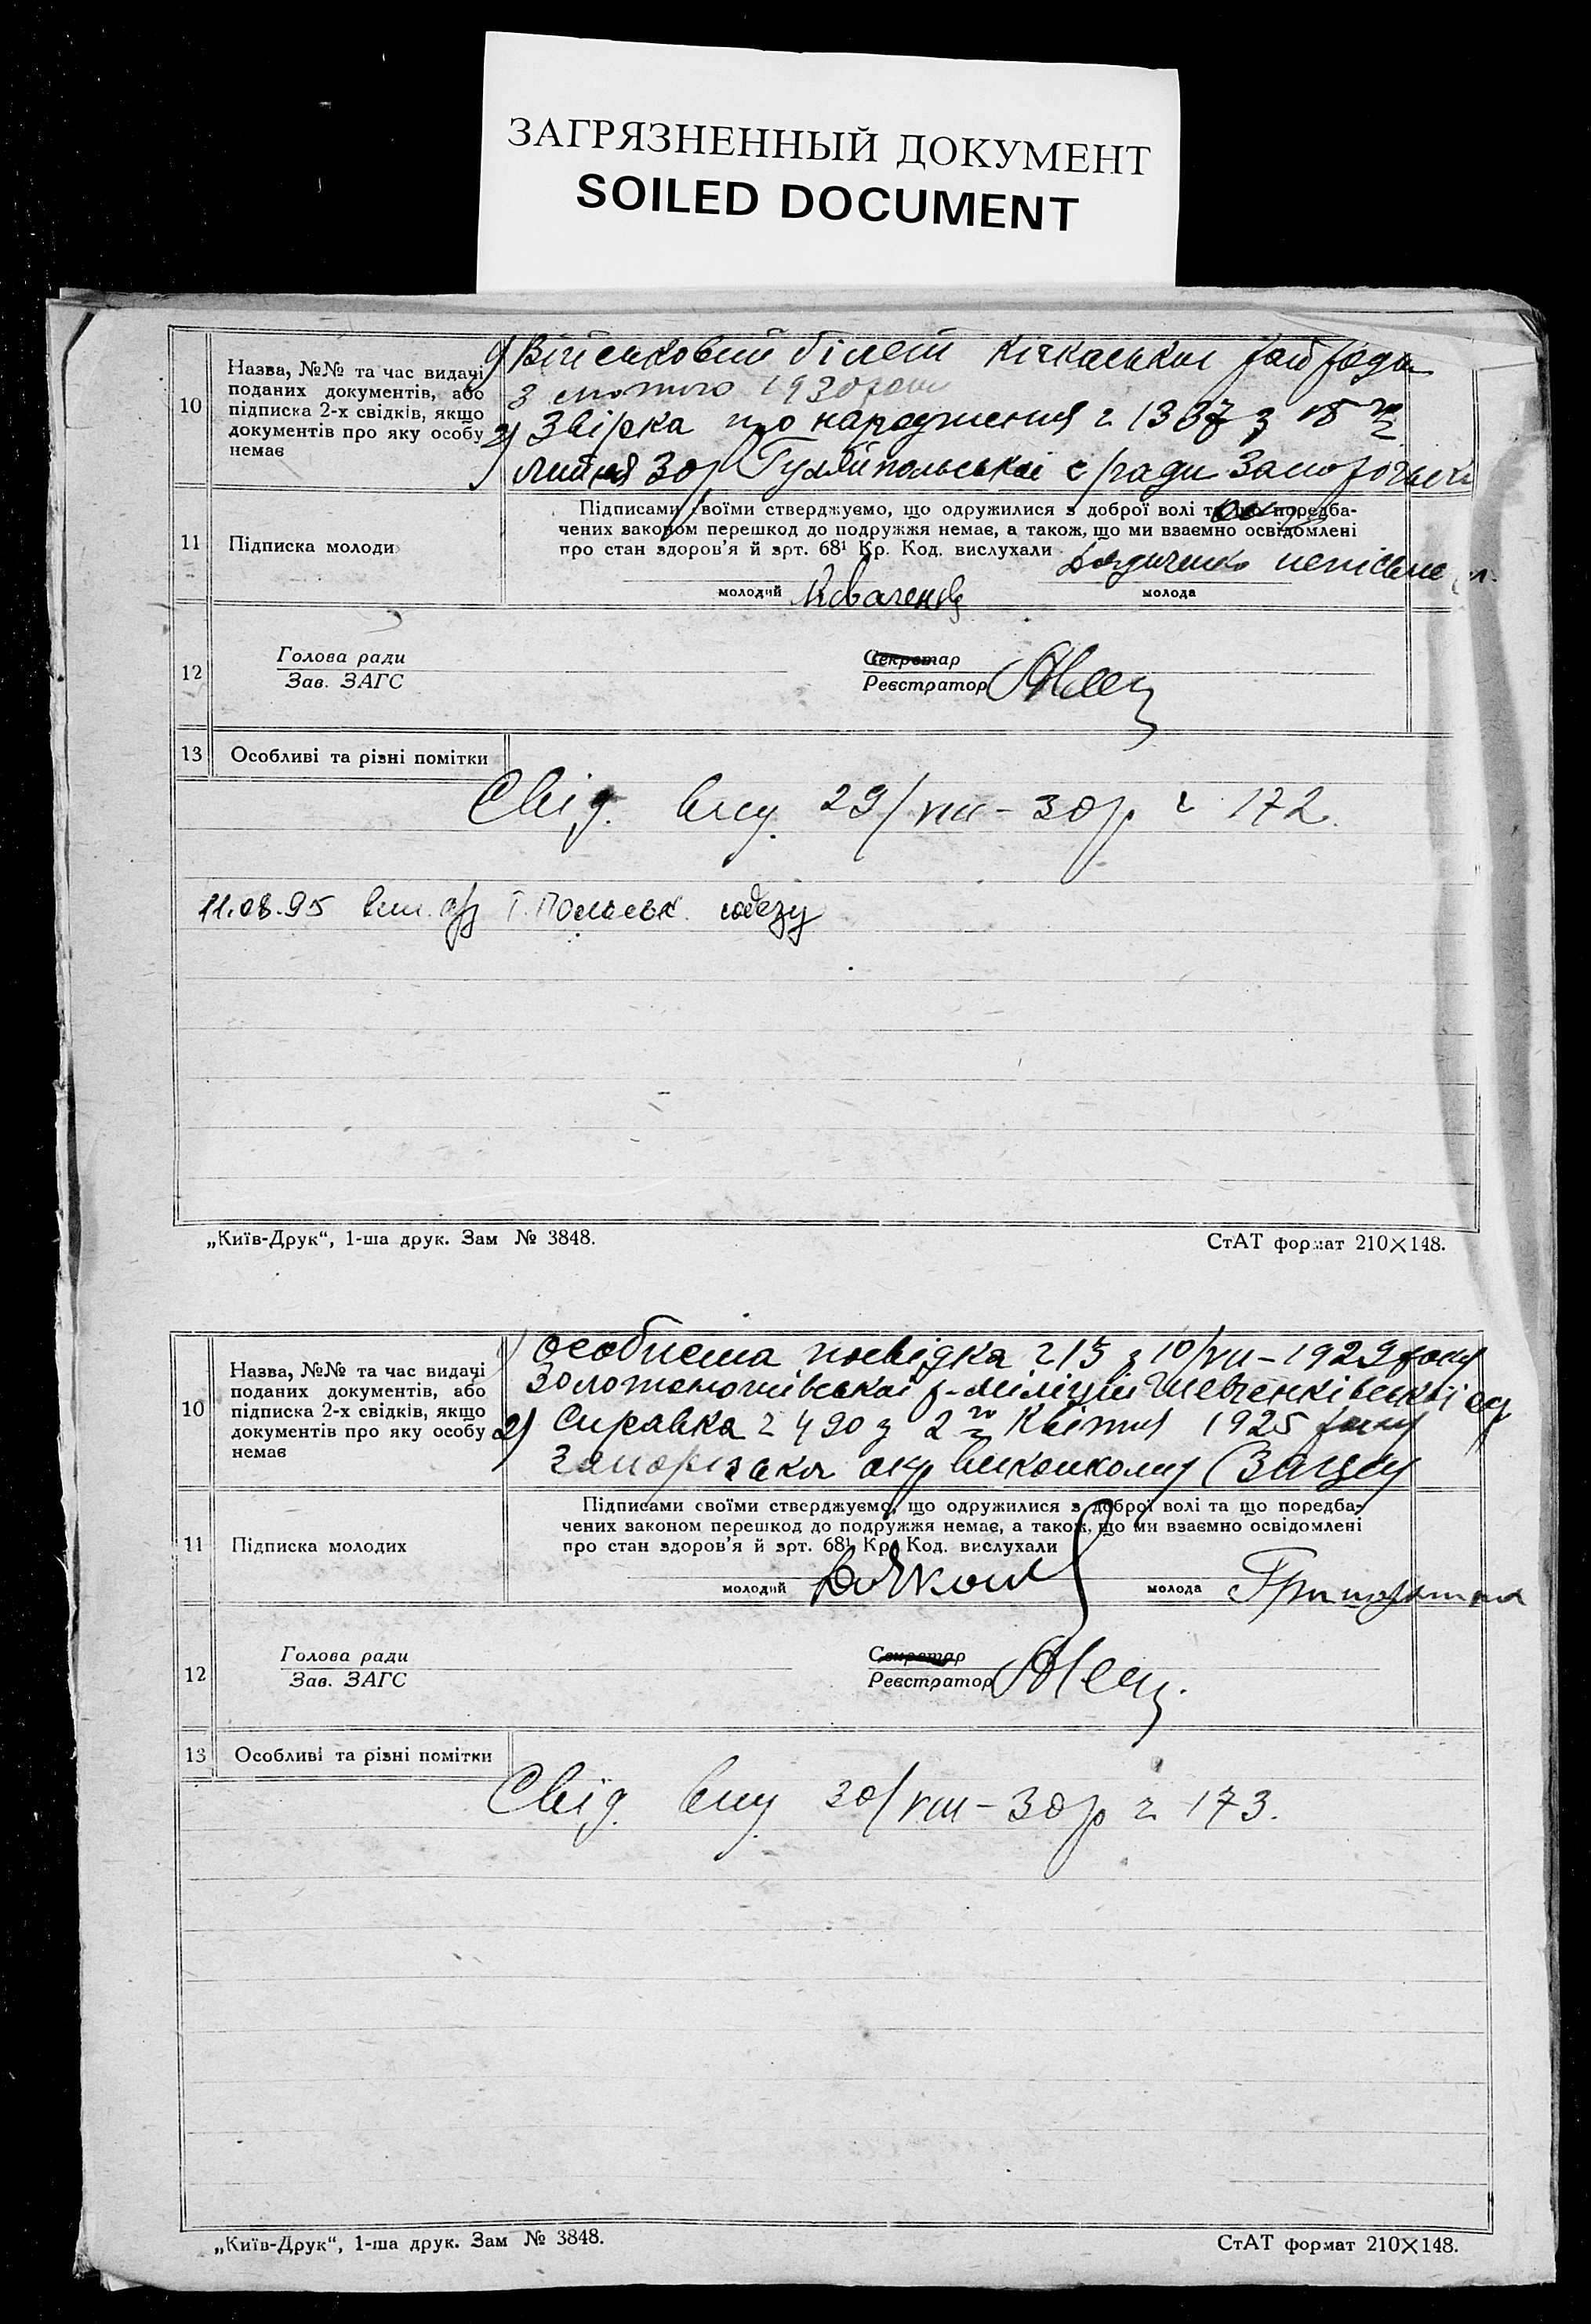 ЗАГРЯЗНЕННЫЙ ДОКУМЕНТ
SOILED DOCUMENT
10
Назва, №№ та час видачі
поданих документів, або
підписка 2-х свідків, якщо
документів про яку особу
немає
1) Військовий білет Кічкаської рай ради
з лютого 1930 року
2) Звірка про народження ч 1337 з 18 го
липня 30 р Гуляйпольської с/ради Запоріжськ
11
Підписка молоди
Підписами своїми стверджуємо, що одружилися з доброї волі та що передба-
чених законом перешкод до подружжя немає, а також, що ми взаємно освідомлені
про стан здоров'я й арт. 68¹ Кр. Код. вислухали
молодий
молода
12
Голова ради
Зав. ЗАГС
Секретар
Реєстратор
13
Особливі та різні помітки
Свід. вид. 29/VIII-30 р ч 172.
11.08.95
„Київ-Друк“, 1-ша друк. Зам № 3848.
СтАТ формат 210×148.
10
Назва, №№ та час видачі
поданих документів, або
підписка 2-х свідків, якщо
документів про яку особу
немає
1) Особиста посвідка ч 15 з 10/VII-1929 року
Золотоношівської р-міліції Шевченківської ок
2) Справка ч 490 з 2 го Квітня 1925 року
Запорізька окр виконкому (Загсу
11
Підписка молодих
Підписами своїми стверджуємо, що одружилися з доброї волі та що передба-
чених законом перешкод до подружжя немає, а також, що ми взаємно освідомлені
про стан здоров'я й арт. 68¹ Кр. Код. вислухали
молодий
молода
12
Голова ради
Зав. ЗАГС
Секретар
Реєстратор
13
Особливі та різні помітки
Свід. вид. 30/VIII-30 р ч 173.
„Київ-Друк“, 1-ша друк. Зам № 3848.
СтАТ формат 210×148.